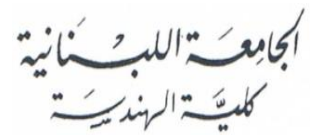 الجامعَة اللبْنَانية
كليَّة الهندسَة